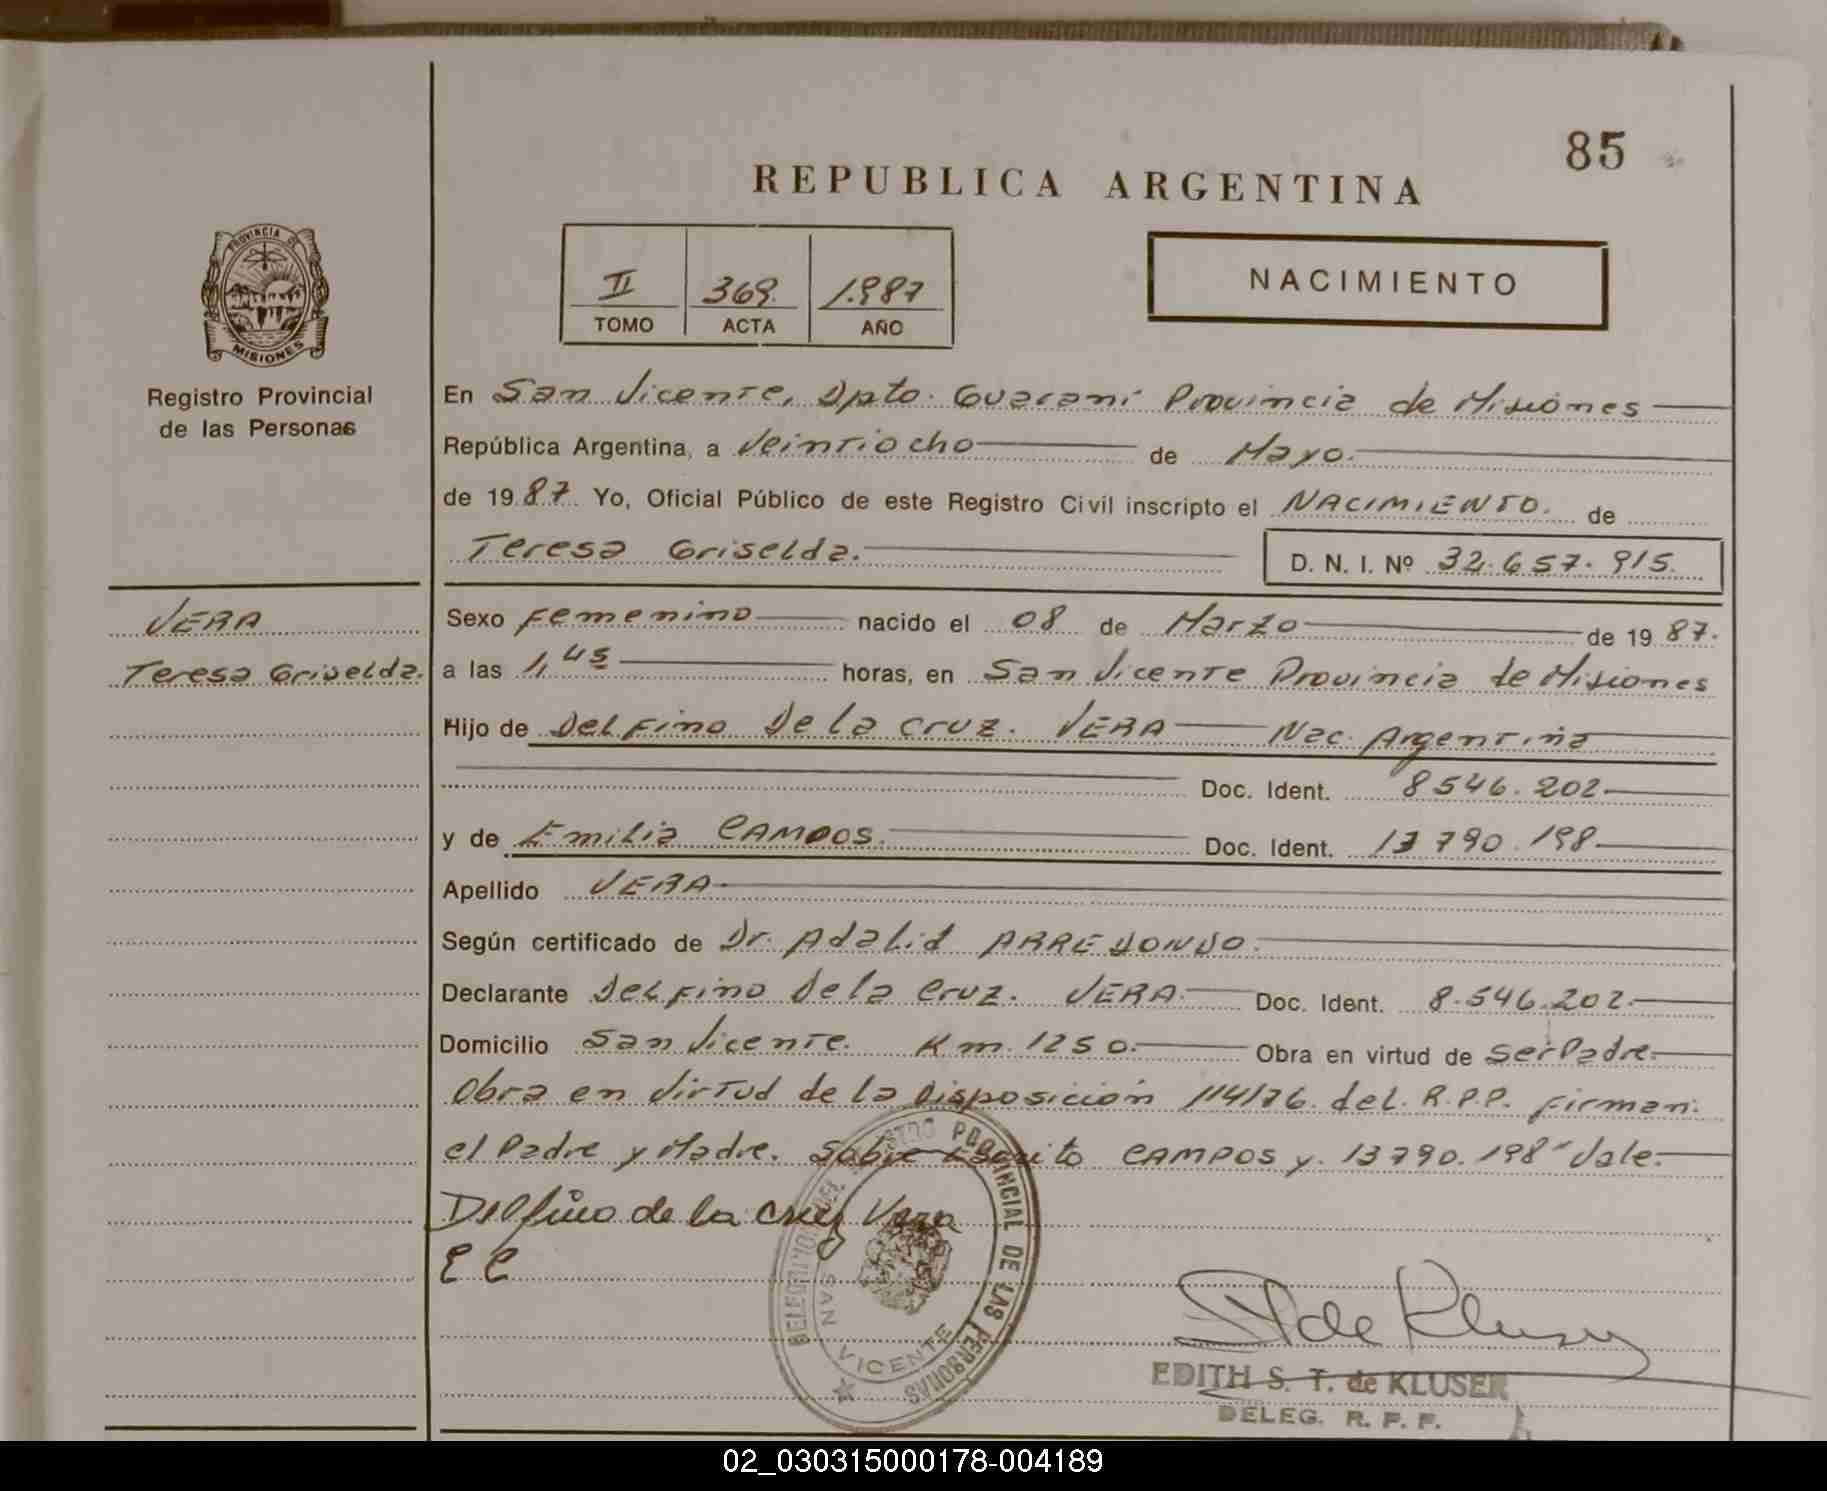 85
REPUBLICA ARGENTINA
PROVINCIA DE
MISIONES
Registro Provincial
de las Personas
II 369. 1.987
TOMO ACTA AÑO
NACIMIENTO
En San Vicente, Dpto. Guarani Provincia de Misiones
República Argentina, a Veintiocho de Mayo.
de 1987. Yo, Oficial Público de este Registro Civil inscripto el NACIMIENTO. de
Teresa Griselda.
D. N. I. Nº 32.657.915.
VERA
Teresa Griselda.
Sexo Femenino nacido el 08 de Marzo de 1987.
a las 1,45 horas, en San Vicente Provincia de Misiones
Hijo de Delfino De la Cruz. VERA Nac. Argentina
Doc. Ident. 8546.202
y de Emilia CAMPOS. Doc. Ident. 13 790.198
Apellido VERA
Según certificado de Dr. Adalid ARREDONDO.
Declarante Delfino De la Cruz. VERA. Doc. Ident. 8.546.202.
Domicilio San Vicente. Km. 1250. Obra en virtud de ser Padre.
Obra en Virtud de la Disposición 114/76. del. R.P.P. Firman.
el Padre y Madre. Sobre Escrito CAMPOS y. 13790.198" Vale.
Delfino de la Cruz Vera
E C
DELEGACION DEL REGISTRO PROVINCIAL DE LAS PERSONAS
SAN VICENTE
EDITH S. T. de KLUSER
DELEG. R. P. P.
02_030315000178-004189